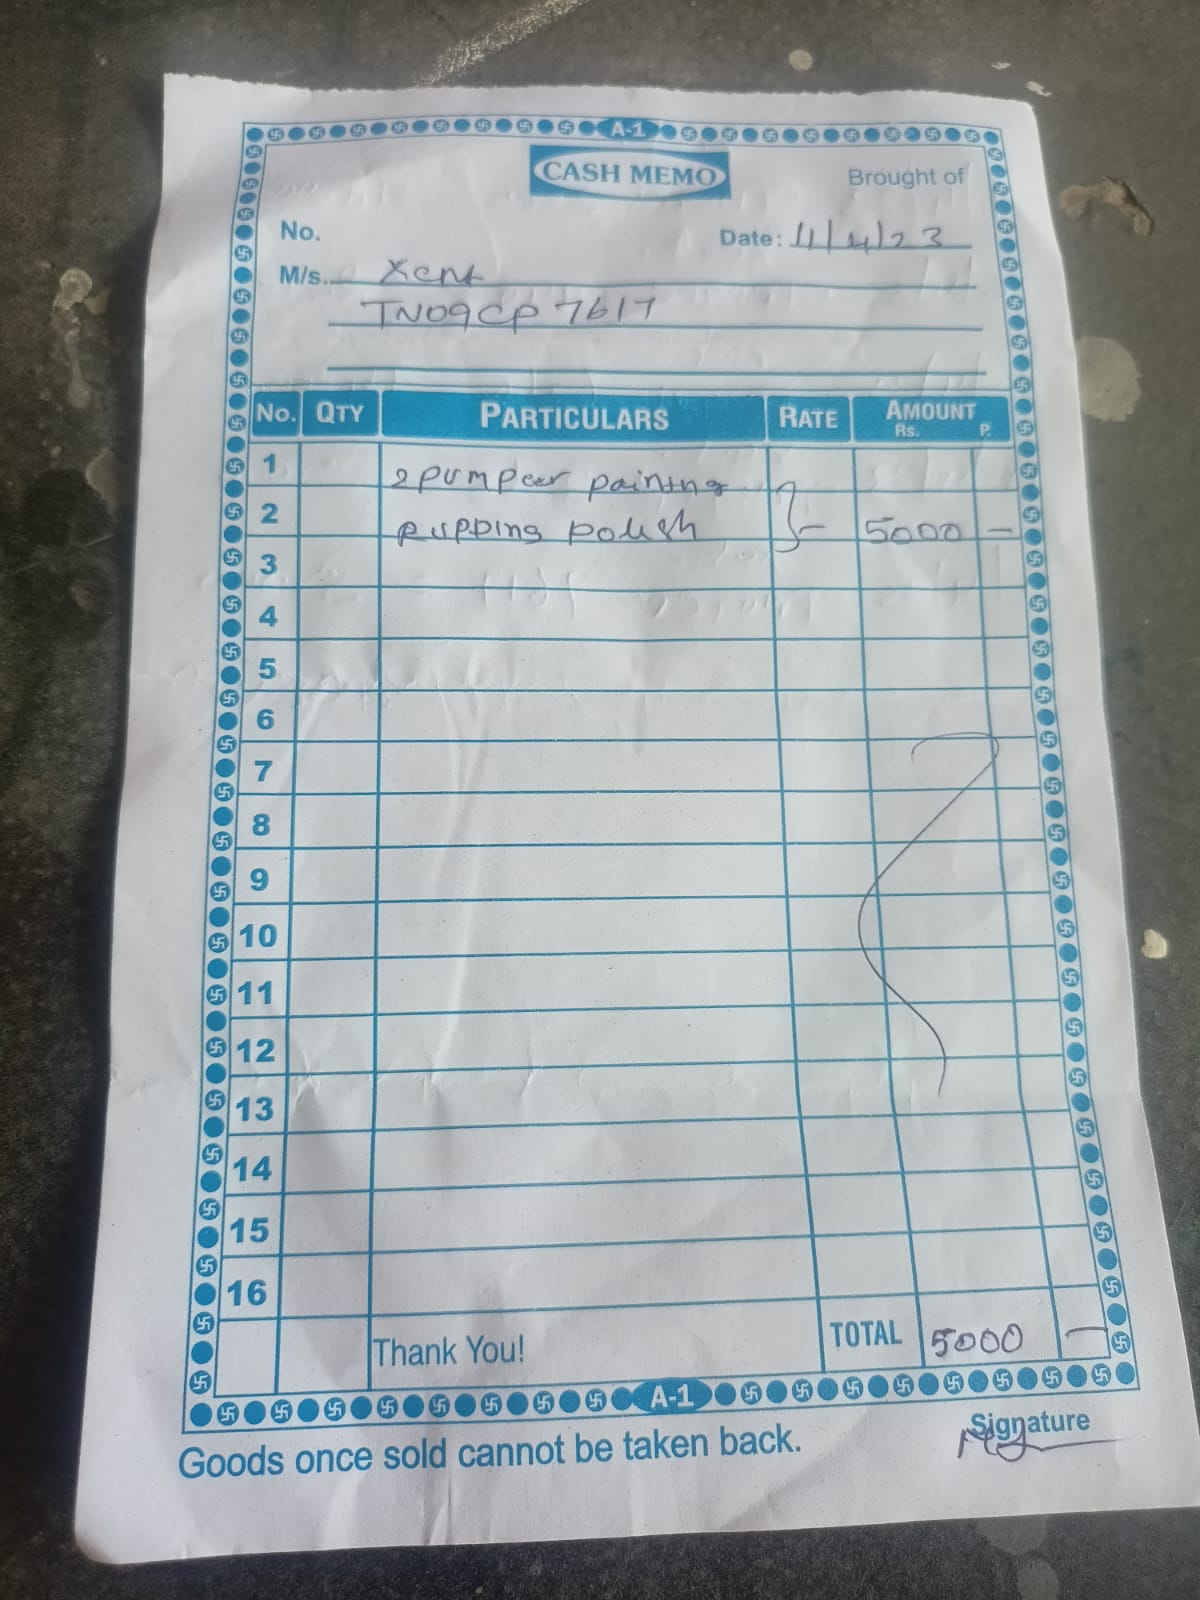 A-1
CASH MEMO
Brought of
No.
Date: 11/4/23
M/s. Xcnt
TN09CP 7617
No. QTY PARTICULARS RATE AMOUNT
Rs. P.
1 2 pumpeer painting
2 Rupping polish } – 5000 –
3
4
5
6
7
8
9
10
11
12
13
14
15
16
Thank You! TOTAL 5000 –
A-1
Goods once sold cannot be taken back.
Signature